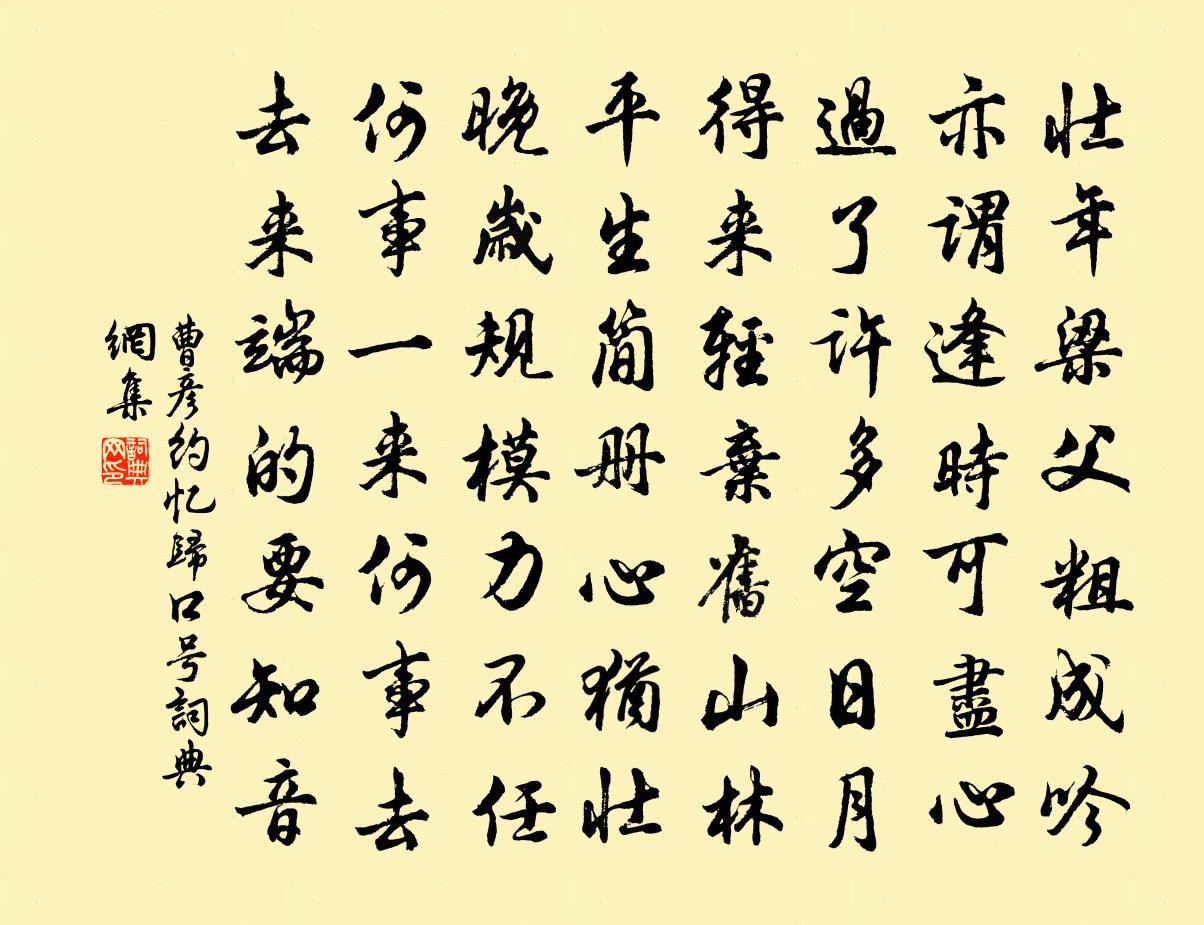 壮年梁父粗成吟
亦谓逢時可盡心
過了许多空日月
得来輕棄舊山林
平生简册心猶壮
晚歲规模力不任
何事一来何事去
去来端的要知音
曹彦约忆歸口号詞典
網集
詞典
网印